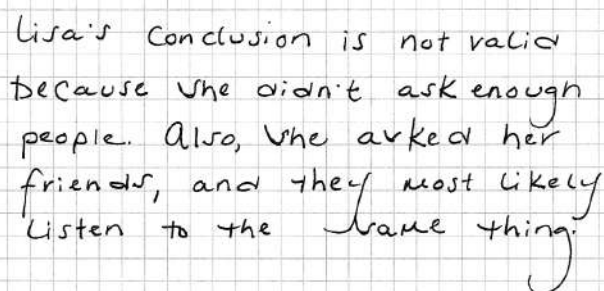 Lisa's Conclusion is not valid
because she didn't ask enough
people. Also, she asked her
friends, and they most likely
Listen to the same thing.